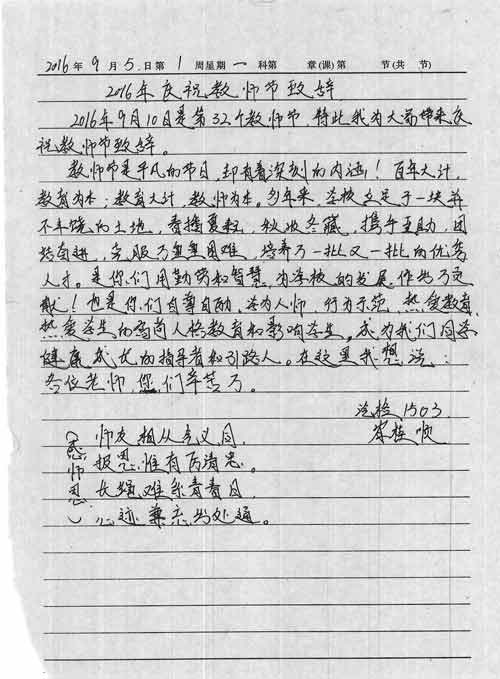 2016年9月5日第1周星期一科第 章(课)第 节(共 节)
2016年庆祝教师节致辞
2016年9月10日是第32个教师节,特此我为大家带来庆
祝教师节致辞。
教师节是平凡的节日,却有着深刻的内涵!百年大计,
教育为本;教育大计,教师为本。多年来,学校立足于一块并
不丰饶的土地,春播夏耘,秋收冬藏,携手互助,团
结奋进,克服了重重困难,培养了一批又一批的优秀
人才。是你们用勤劳和智慧,为学校的发展作出了贡
献!也是你们自尊自励,学为人师,行为示范,热爱教育,
热爱学生的高尚人格教育和影响学生,成为我们同学
健康成长的指导者和引路人。在这里我想说:
各位老师,您们辛苦了。
1503
(感师恩)
师友相从义同,
报恩惟有两清忠。
长难系青青日,
心迹兼亲出处通。